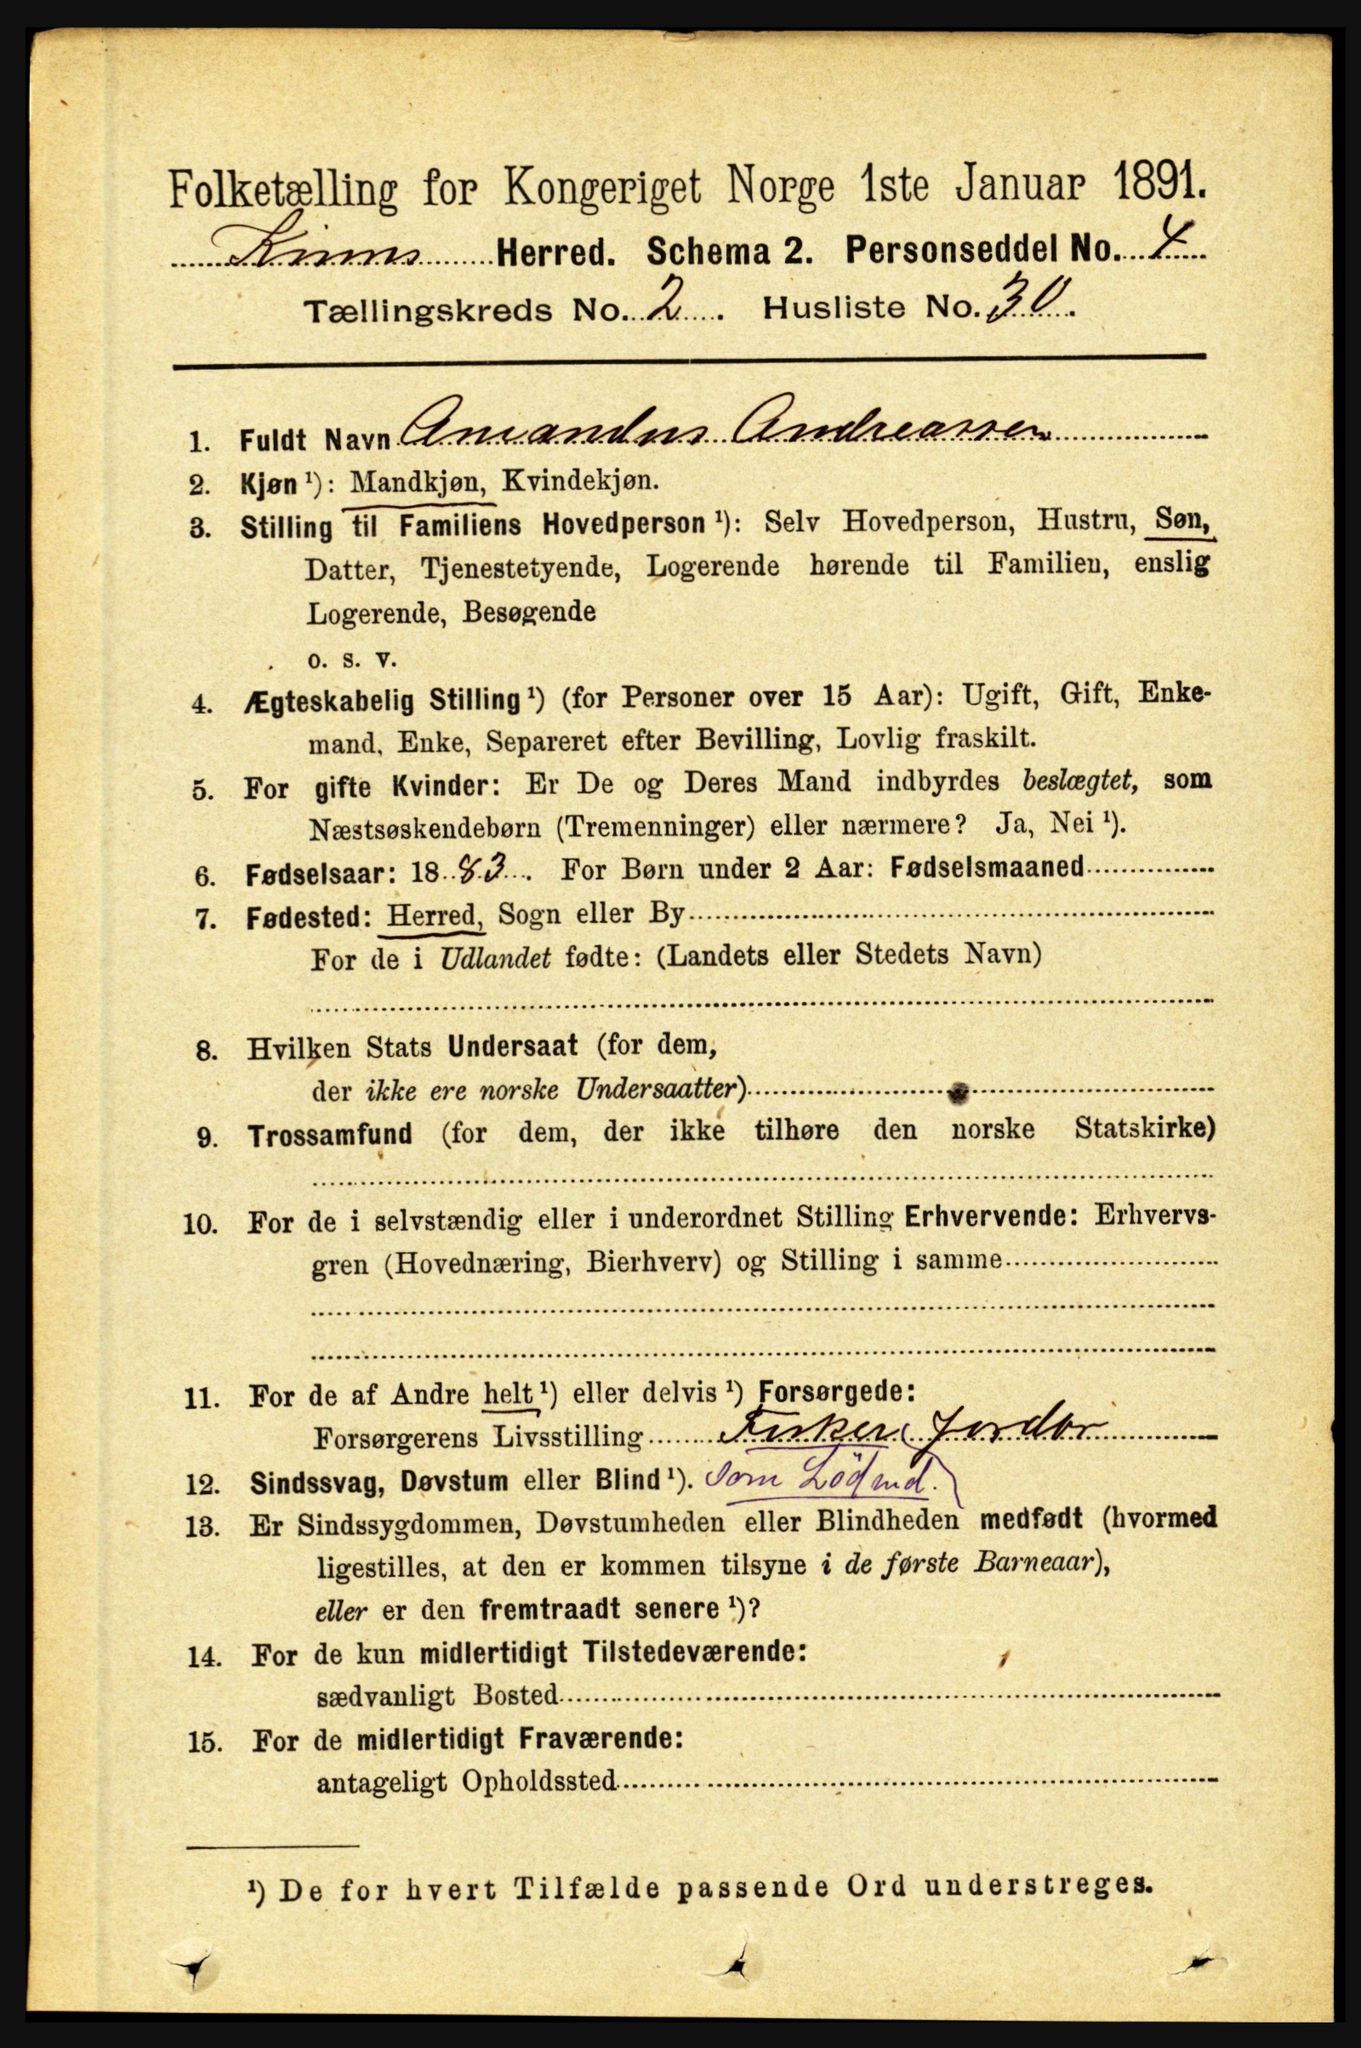 Folketælling for Kongeriget Norge 1ste Januar 1891.
Kinns Herred. Schema 2. Personseddel No. 4
Tællingskreds No. 2. Husliste No. 30.
1. Fuldt Navn Amandus Andreassen
2. Kjøn ¹): Mandkjøn, Kvindekjøn.
3. Stilling til Familiens Hovedperson ¹): Selv Hovedperson, Hustru, Søn,
Datter, Tjenestetyende, Logerende hørende til Familien, enslig
Logerende, Besøgende
o. s. v.
4. Ægteskabelig Stilling ¹) (for Personer over 15 Aar): Ugift, Gift, Enke-
mand, Enke, Separeret efter Bevilling, Lovlig fraskilt.
5. For gifte Kvinder: Er De og Deres Mand indbyrdes beslægtet, som
Næstsøskendebørn (Tremenninger) eller nærmere? Ja, Nei ¹).
6. Fødselsaar: 1883. For Børn under 2 Aar: Fødselsmaaned
7. Fødested: Herred, Sogn eller By
For de i Udlandet fødte: (Landets eller Stedets Navn)
8. Hvilken Stats Undersaat (for dem,
der ikke ere norske Undersaatter)
9. Trossamfund (for dem, der ikke tilhøre den norske Statskirke)
10. For de i selvstændig eller i underordnet Stilling Erhvervende: Erhvervs-
gren (Hovednæring, Bierhverv) og Stilling i samme
11. For de af Andre helt ¹) eller delvis ¹) Forsørgede:
Forsørgerens Livsstilling Fisker (Jordbr
12. Sindssvag, Døvstum eller Blind ¹). som Lödmd.)
13. Er Sindssygdommen, Døvstumheden eller Blindheden medfødt (hvormed
ligestilles, at den er kommen tilsyne i de første Barneaar),
eller er den fremtraadt senere ¹)?
14. For de kun midlertidigt Tilstedeværende:
sædvanligt Bosted
15. For de midlertidigt Fraværende:
antageligt Opholdssted
¹) De for hvert Tilfælde passende Ord understreges.